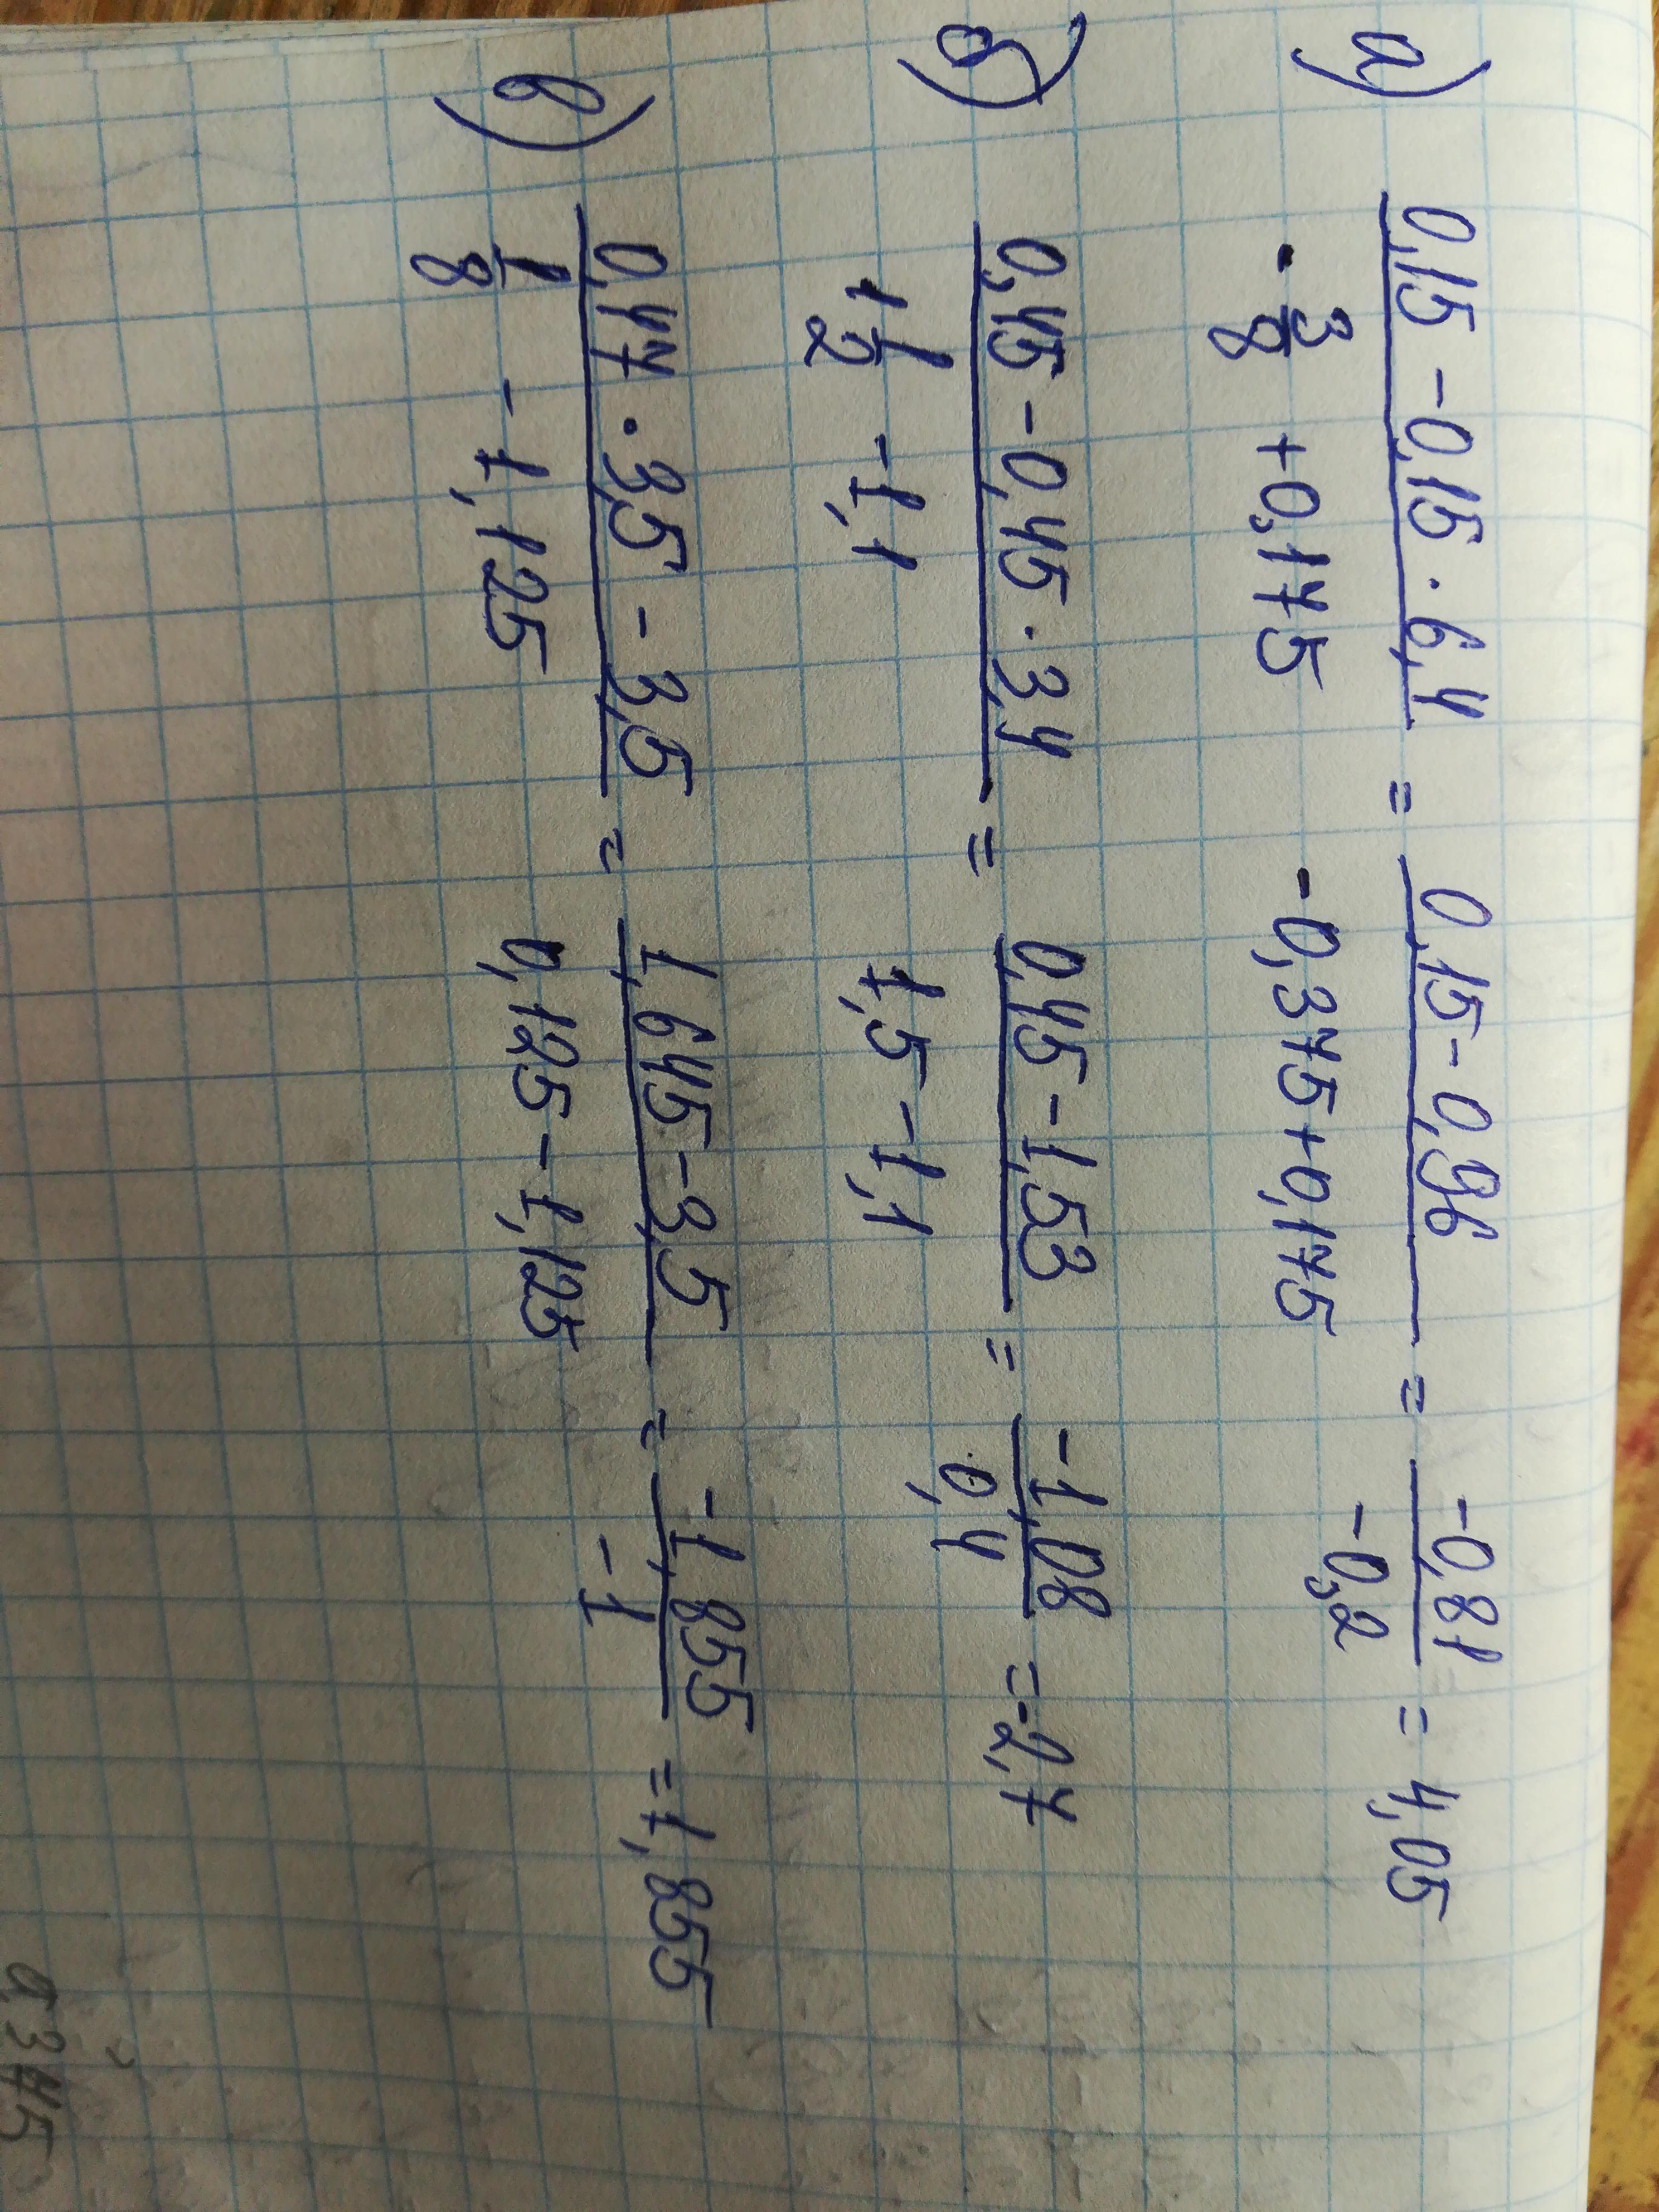 а) 0,15 - 0,15 · 6,4 = 0,15 - 0,96 = -0,81 = 4,05
- 3/8 + 0,175   -0,375 + 0,175   -0,2
б) 0,45 - 0,45 · 3,4 = 0,45 - 1,53 = -1,08 = -2,7
1 1/2 - 1,1   1,5 - 1,1   0,4
в) 0,47 · 3,5 - 3,5 = 1,645 - 3,5 = -1,855 = 1,855
1/8 - 1,125   0,125 - 1,125   -1